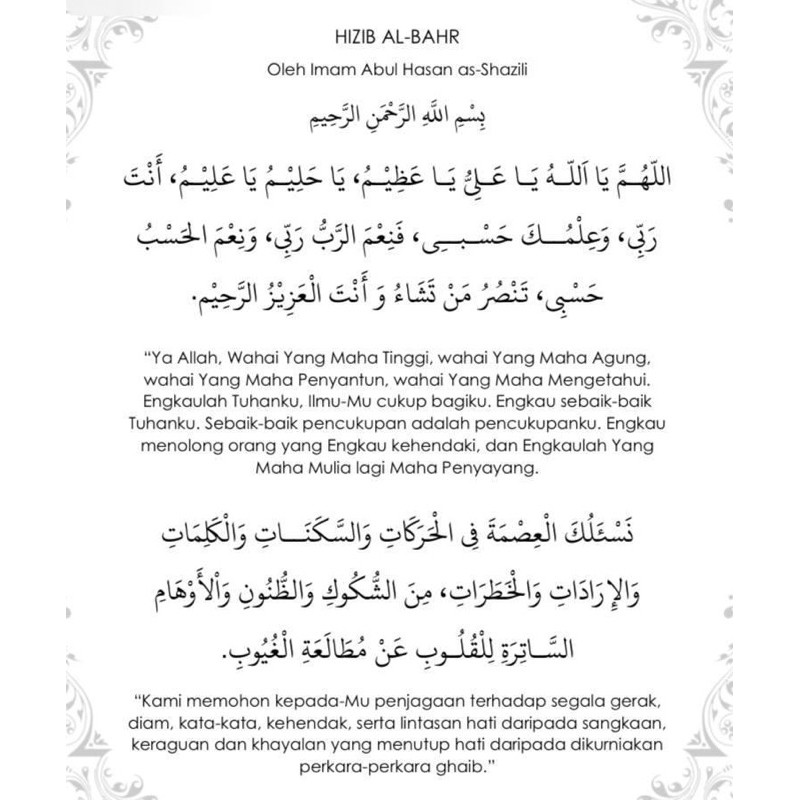 HIZIB AL-BAHR
Oleh Imam Abul Hasan as-Shazili
بِسْمِ اللَّهِ الرَّحْمَنِ الرَّحِيمِ
اللّٰهُمَّ يَا اَللّٰهُ يَا عَلِىُّ يَا عَظِيْمُ، يَا حَلِيْمُ يَا عَلِيْمُ، أَنْتَ
رَبِّى، وَعِلْمُكَ حَسْبِى، فَنِعْمَ الرَّبُّ رَبِّى، وَنِعْمَ الحَسْبُ
حَسْبِى، تَنْصُرُ مَنْ تَشَاءُ وَ أَنْتَ الْعَزِيْزُ الرَّحِيْم.
“Ya Allah, Wahai Yang Maha Tinggi, wahai Yang Maha Agung,
wahai Yang Maha Penyantun, wahai Yang Maha Mengetahui.
Engkaulah Tuhanku, Ilmu-Mu cukup bagiku. Engkau sebaik-baik
Tuhanku. Sebaik-baik pencukupan adalah pencukupanku. Engkau
menolong orang yang Engkau kehendaki, dan Engkaulah Yang
Maha Mulia lagi Maha Penyayang.
نَسْئَلُكَ الْعِصْمَةَ فِى الْحَرَكَاتِ وَالسَّكَنَاتِ وَالْكَلِمَاتِ
وَالإِرَادَاتِ وَالْخَطَرَاتِ، مِنَ الشُّكُوكِ وَالظُّنُونِ وَاْلأَوْهَامِ
السَّاتِرَةِ لِلْقُلُوبِ عَنْ مُطَالَعَةِ الْغُيُوبِ.
“Kami memohon kepada-Mu penjagaan terhadap segala gerak,
diam, kata-kata, kehendak, serta lintasan hati daripada sangkaan,
keraguan dan khayalan yang menutup hati daripada dikurniakan
perkara-perkara ghaib.”